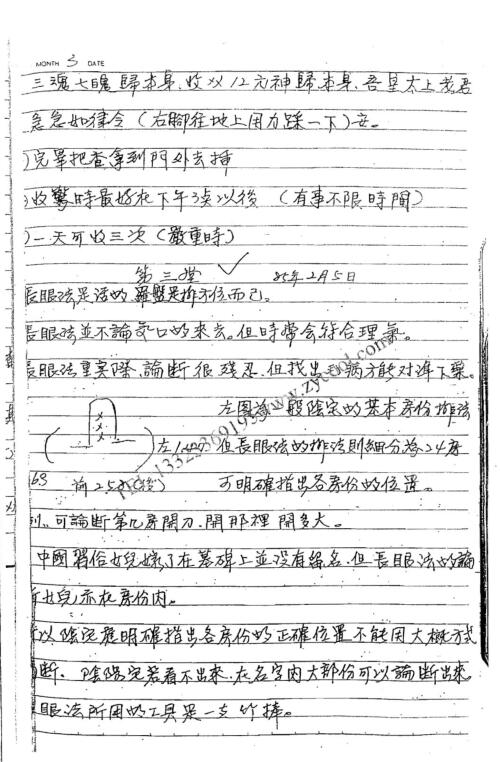 MONTH 3 DATE
三魂七魄歸本身,收以12元神歸本身,吾皇太上老君
急急如律令(右腳在地上用力踩一下)安。
)完畢把香拿到門外去插
)收驚時最好在下午3点以後(有事不限時間)
)一天可收三次(嚴重時)
第三堂 ✓ 85年2月5日
長眼法是活的羅盤是排方位而已。
長眼法並不論 口的來去。但時常会符合理氣。
長眼法重實際,論斷很殘忍,但找出 病方能对
左圖為一般陰宅的基本房份排法
左 但長眼法的排法則細分為24房
63 前2.5 (後) 可明確指出各房份的位置。
可論斷第几房開刀.開那裡 開多大。
中國習俗女兒嫁了在墓碑上並沒有緒名.但長眼法的論
女兒亦在房份内。
以陰宅 明確指出各房份的正確位置不能用大概方式
斷. 陰陽宅若看不出來.在名字内大部份可以論斷出來。
眼法所用的工具是一支竹棒。